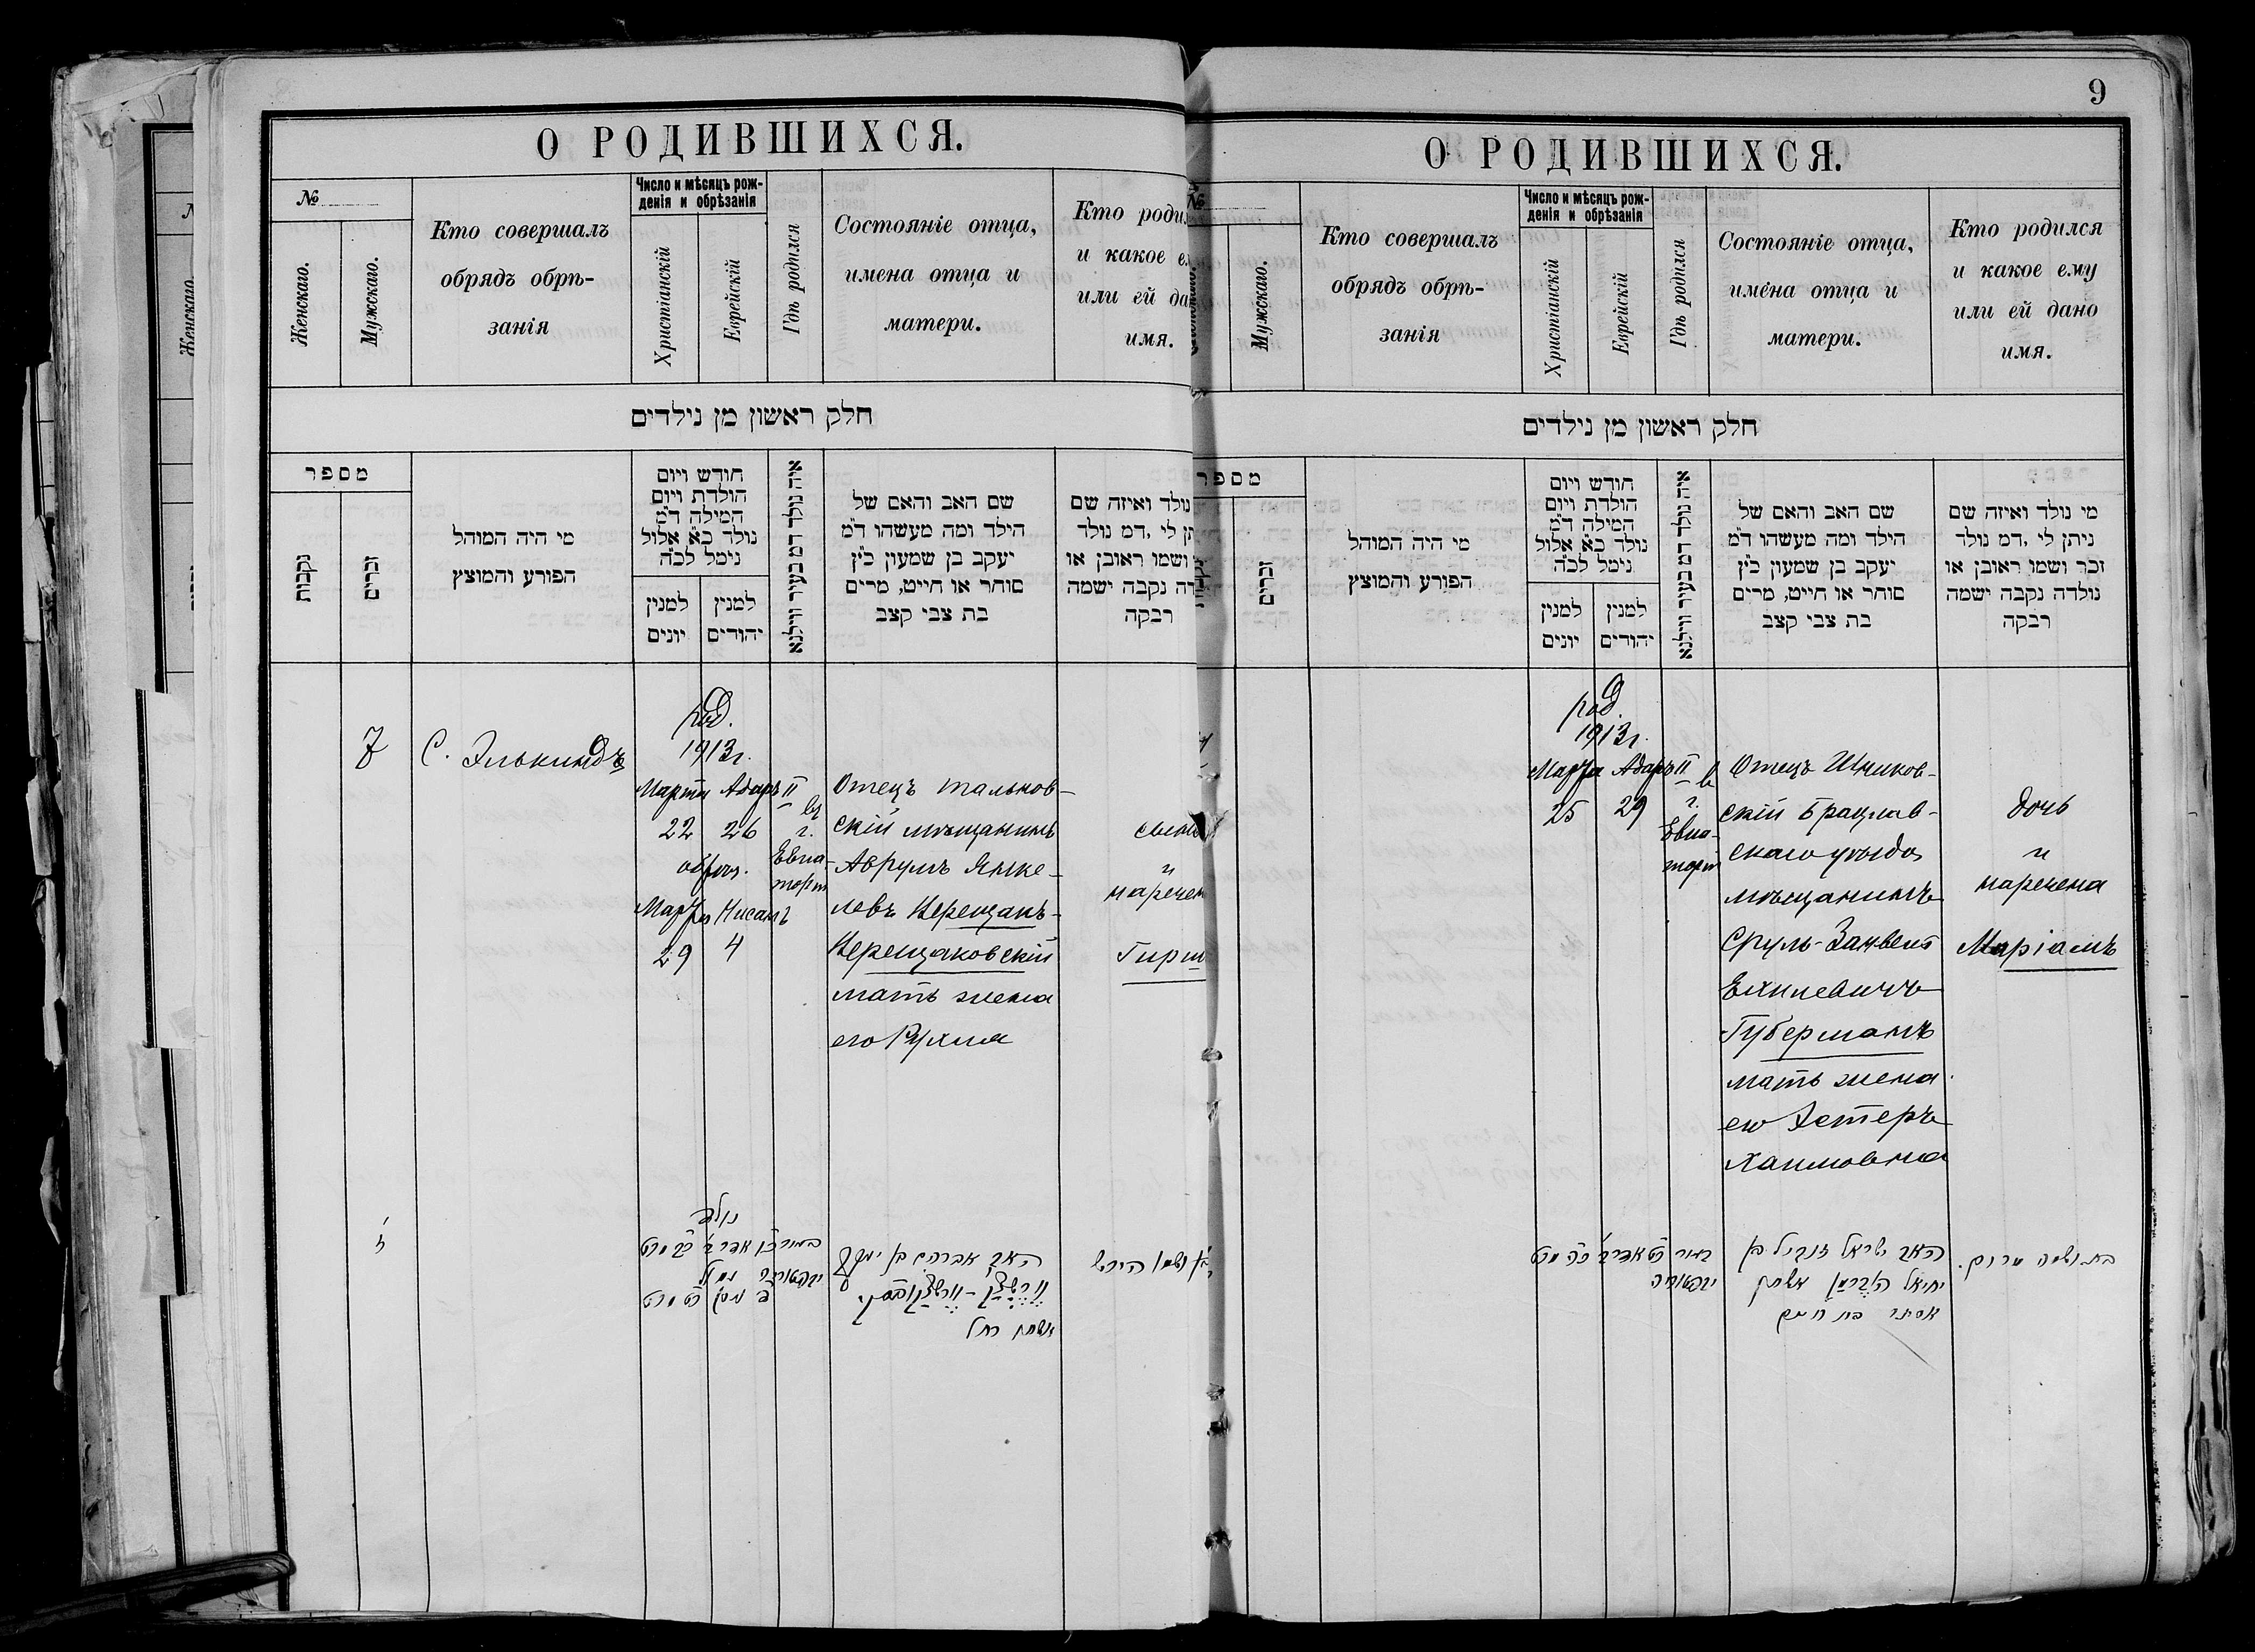 О РОДИВШИХСЯ.
№
Женскаго.
Мужскаго.
Кто совершалъ
обрядъ обрѣ-
занія
Число и мѣсяцъ рож-
денія и обрѣзанія
Христіанскій
Еврейскій
Гдѣ родился
Состояніе отца,
имена отца и
матери.
Кто роди
и какое е
или ей да
имя.
חלק ראשון מן נילדים
מספר
נקבות
זכרים
מי היה המוהל
הפורע והמוצץ
חודש ויום
הולדת ויום
המילה ד״מ
נולד כ״א אלול
נימל לכ״ה
למנין
יונים
למנין
יהודים
איה נולד דמ בעיר ווילנא
שם האב והאם של
הילד ומה מעשהו ד״מ
יעקב בן שמעון כ״ץ
סוחר או חייט, מרים
בת צבי קצב
נולד ואיזה שם
תן לי ,דמ נולד
ושמו ראובן או
דה נקבה ישמה
רבקה
7
С. Элькиндъ
род.
1913 г.
Марта Адаръ II
22 26
обрѣз.
Марта Нисанъ
29 4
въ
г.
Евпа-
торіи
Отецъ тальнов-
скій мѣщанинъ
Аврумъ Янке-
левъ Верещакъ-
Верещаковскій
мать жена
его Рухля
сынъ
и
наречен
Гирш
ז
נולד
האב אברהם בן יעקב
ווערעשצאק - ווערעשצאקובסקי
אשתו רחל
בן ושמו הירש
9
О РОДИВШИХСЯ.
№
Мужскаго.
Кто совершалъ
обрядъ обрѣ-
занія
Число и мѣсяцъ рож-
денія и обрѣзанія
Христіанскій
Еврейскій
Гдѣ родился
Состояніе отца,
имена отца и
матери.
Кто родился
и какое ему
или ей дано
имя.
חלק ראשון מן נילדים
מספר
זכרים
מי היה המוהל
הפורע והמוצץ
חודש ויום
הולדת ויום
המילה ד״מ
נולד כ״א אלול
נימל לכ״ה
למנין
יונים
למנין
יהודים
איה נולד דמ בעיר ווילנא
שם האב והאם של
הילד ומה מעשהו ד״מ
יעקב בן שמעון כ״ץ
סוחר או חייט, מרים
בת צבי קצב
מי נולד ואיזה שם
ניתן לי ,דמ נולד
זכר ושמו ראובן או
נולדה נקבה ישמה
רבקה
род.
1913 г.
Марта Адаръ II
25 29
в
г.
Евпа-
торіи
Отецъ Шпиков-
скій Брацлав-
скаго уѣзда
мѣщанинъ
Сруль-Занвель
Ехилевичъ
Губерманъ
мать жена
его Эстеръ
Хаимовна
дочь
и
наречена
Маріамъ
האב ישראל זנביל בן
יחיאל הוברמן אשתו
אסתר בת חיים
בת ושמה מרים.